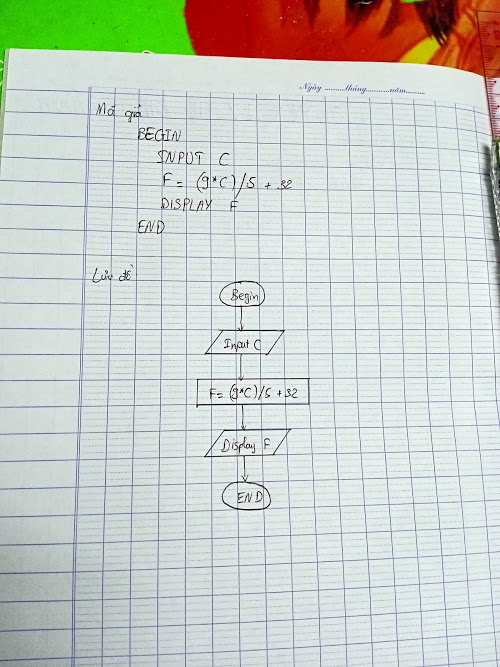 Ngày.........tháng...........năm.........
Mã giả
BEGIN
INPUT C
F = (9*C)/5 + 32
DISPLAY F
END
Lưu đồ
Begin
Input C
F = (9*C)/5 + 32
Display F
END